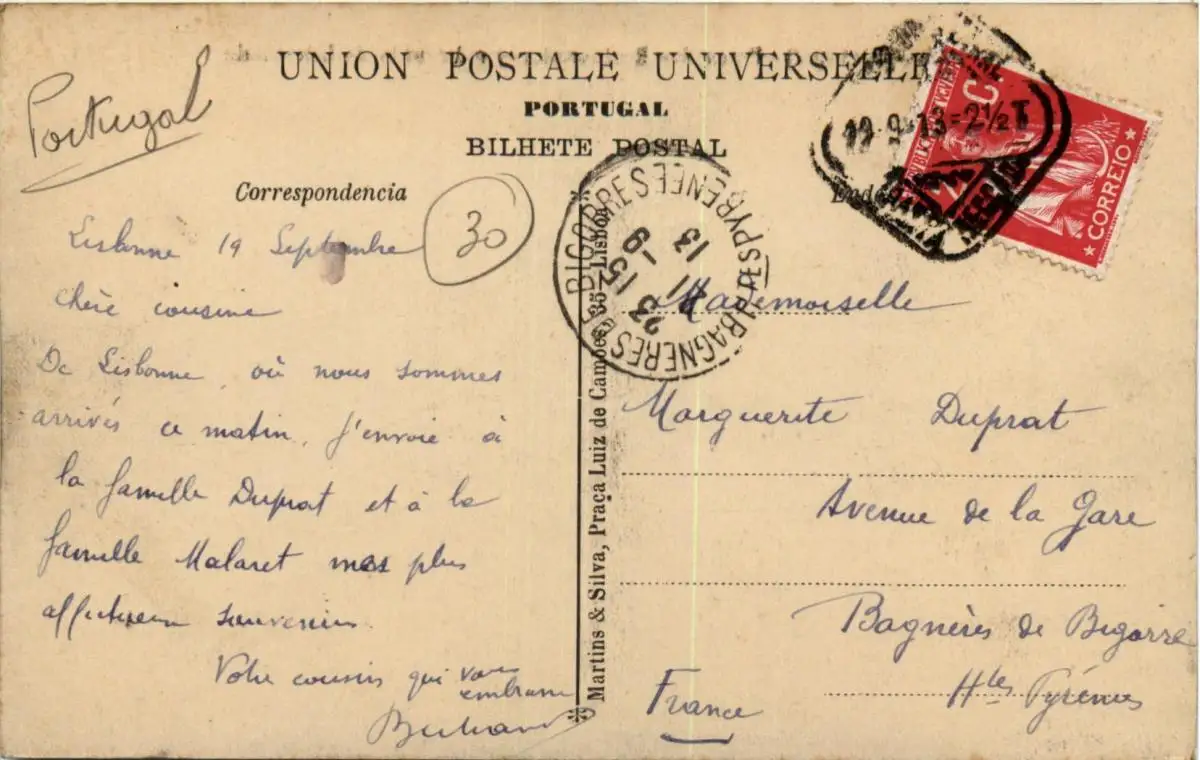 UNION POSTALE UNIVERSELLE
PORTUGAL
BILHETE POSTAL
Portugal
Correspondencia
30
Lisbonne 19 Septembre
chère cousine
De Lisbonne, où nous sommes
arrivés ce matin, j'envoie à
la famille Duprat et à la
famille Malaret mes plus
affectueux souvenirs.
Votre cousin qui vous
embrasse
Bertrand
Martins & Silva, Praça Luiz de Camões, 35 - Lisboa
BAGNERES DE BIGORRE
PYRENEES
23 15
-9
13
19-9-13=2½T
2 C.
CORREIO
Mademoiselle
Marguerite Duprat
Avenue de la Gare
Bagnères de Bigorre
Htes Pyrénées
France